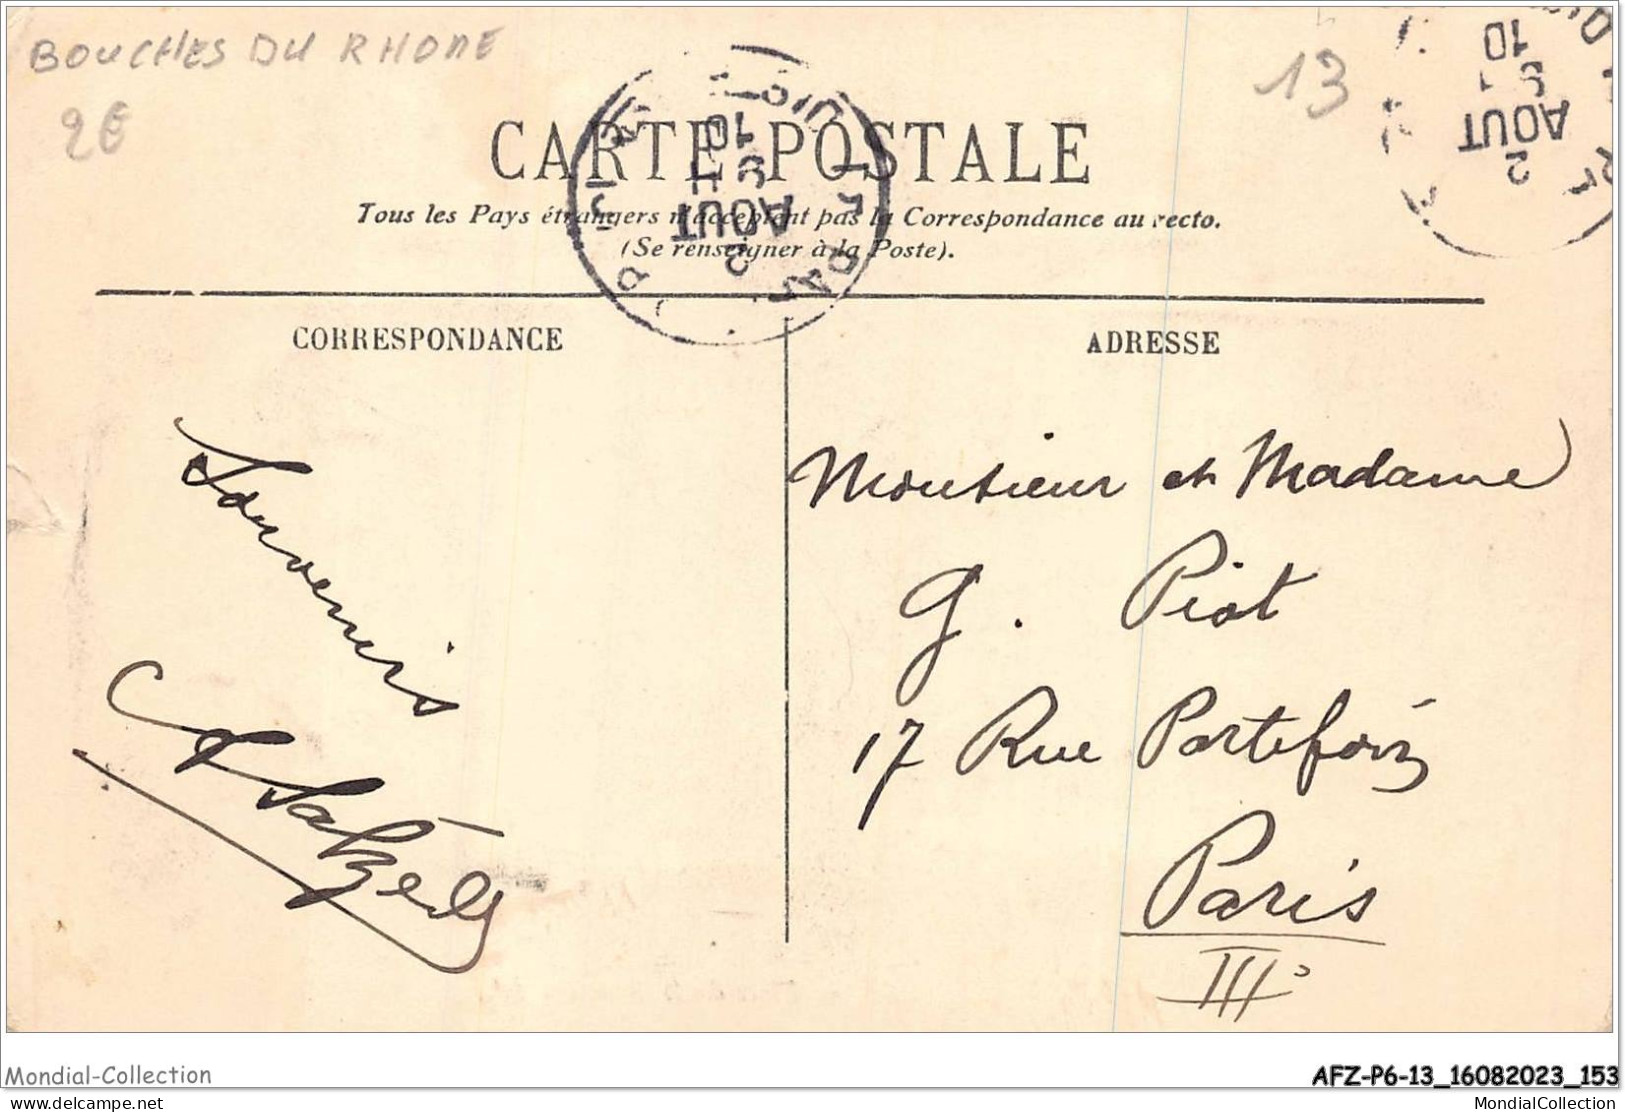 BOUCHES DU RHONE
2€
13
CARTE POSTALE
Tous les Pays étrangers n'acceptent pas la Correspondance au recto.
(Se renseigner à la Poste).
2
AOUT
10
2
AOUT
10
CORRESPONDANCE
ADRESSE
Souvenirs
Monsieur et Madame
G. Piot
17 Rue Portefoin
Paris
IIIe
Mondial-Collection
AFZ-P6-13_16082023_153
delcampe.net
MondialCollection